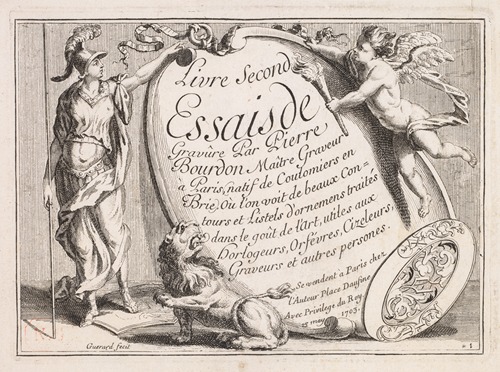 Livre Second
Essais de
Gravûre Par Pierre
Bourdon Maître Graveur
a Paris, natif de Coulomiers en
Brie, Ou l'on voit de beaux Con=
tours et Listels d'ornemens traités
dans le goût de l'Art, utiles aux
Horlogeurs, Orfévres, Cizeleurs,
Graveurs et autres persones.
Se vendent a Paris chez
l'Auteur Place Daufine
Avec Privilege du Roy
15 may 1703.
Guerard fecit
1